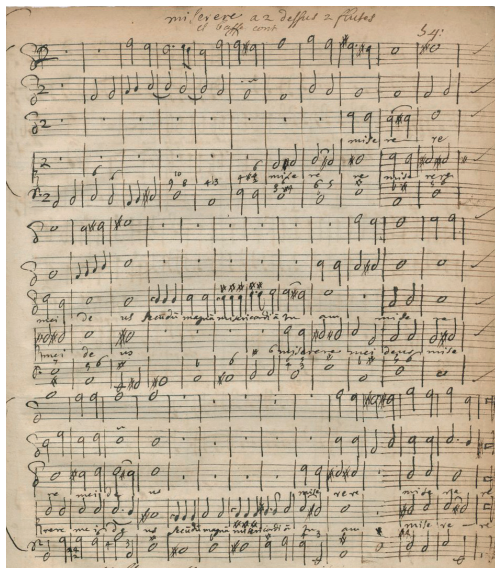 miserere a 2 dessus 2 flutes
et basse cont
54.
mise re re
mise re re mise rere
mei de us secundū magnā misericordiā tu am mise re
mei de us miserere mei deus mise
re mei de us mise rere mise re re
rere mei de us secundū magnā misericordiā tu am mise re re